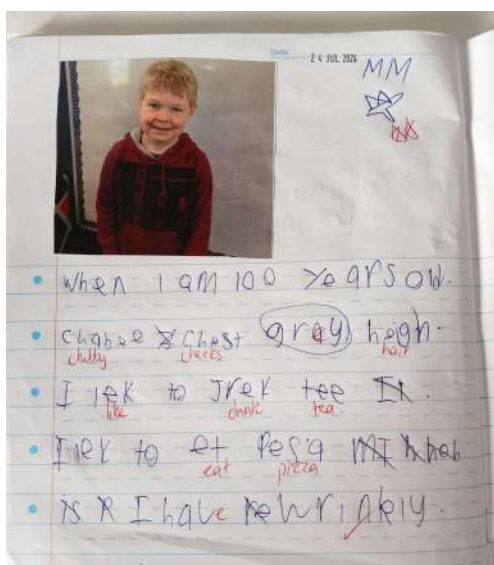 Date: 24 JUL 2024
MM
When I am 100 years old.
chabee chest gray heigh.
chubby cheeks hair
I lek to Jrek tee
like drink tea.
I lek to et Pesa
eat pizza
is I have wrinkly.